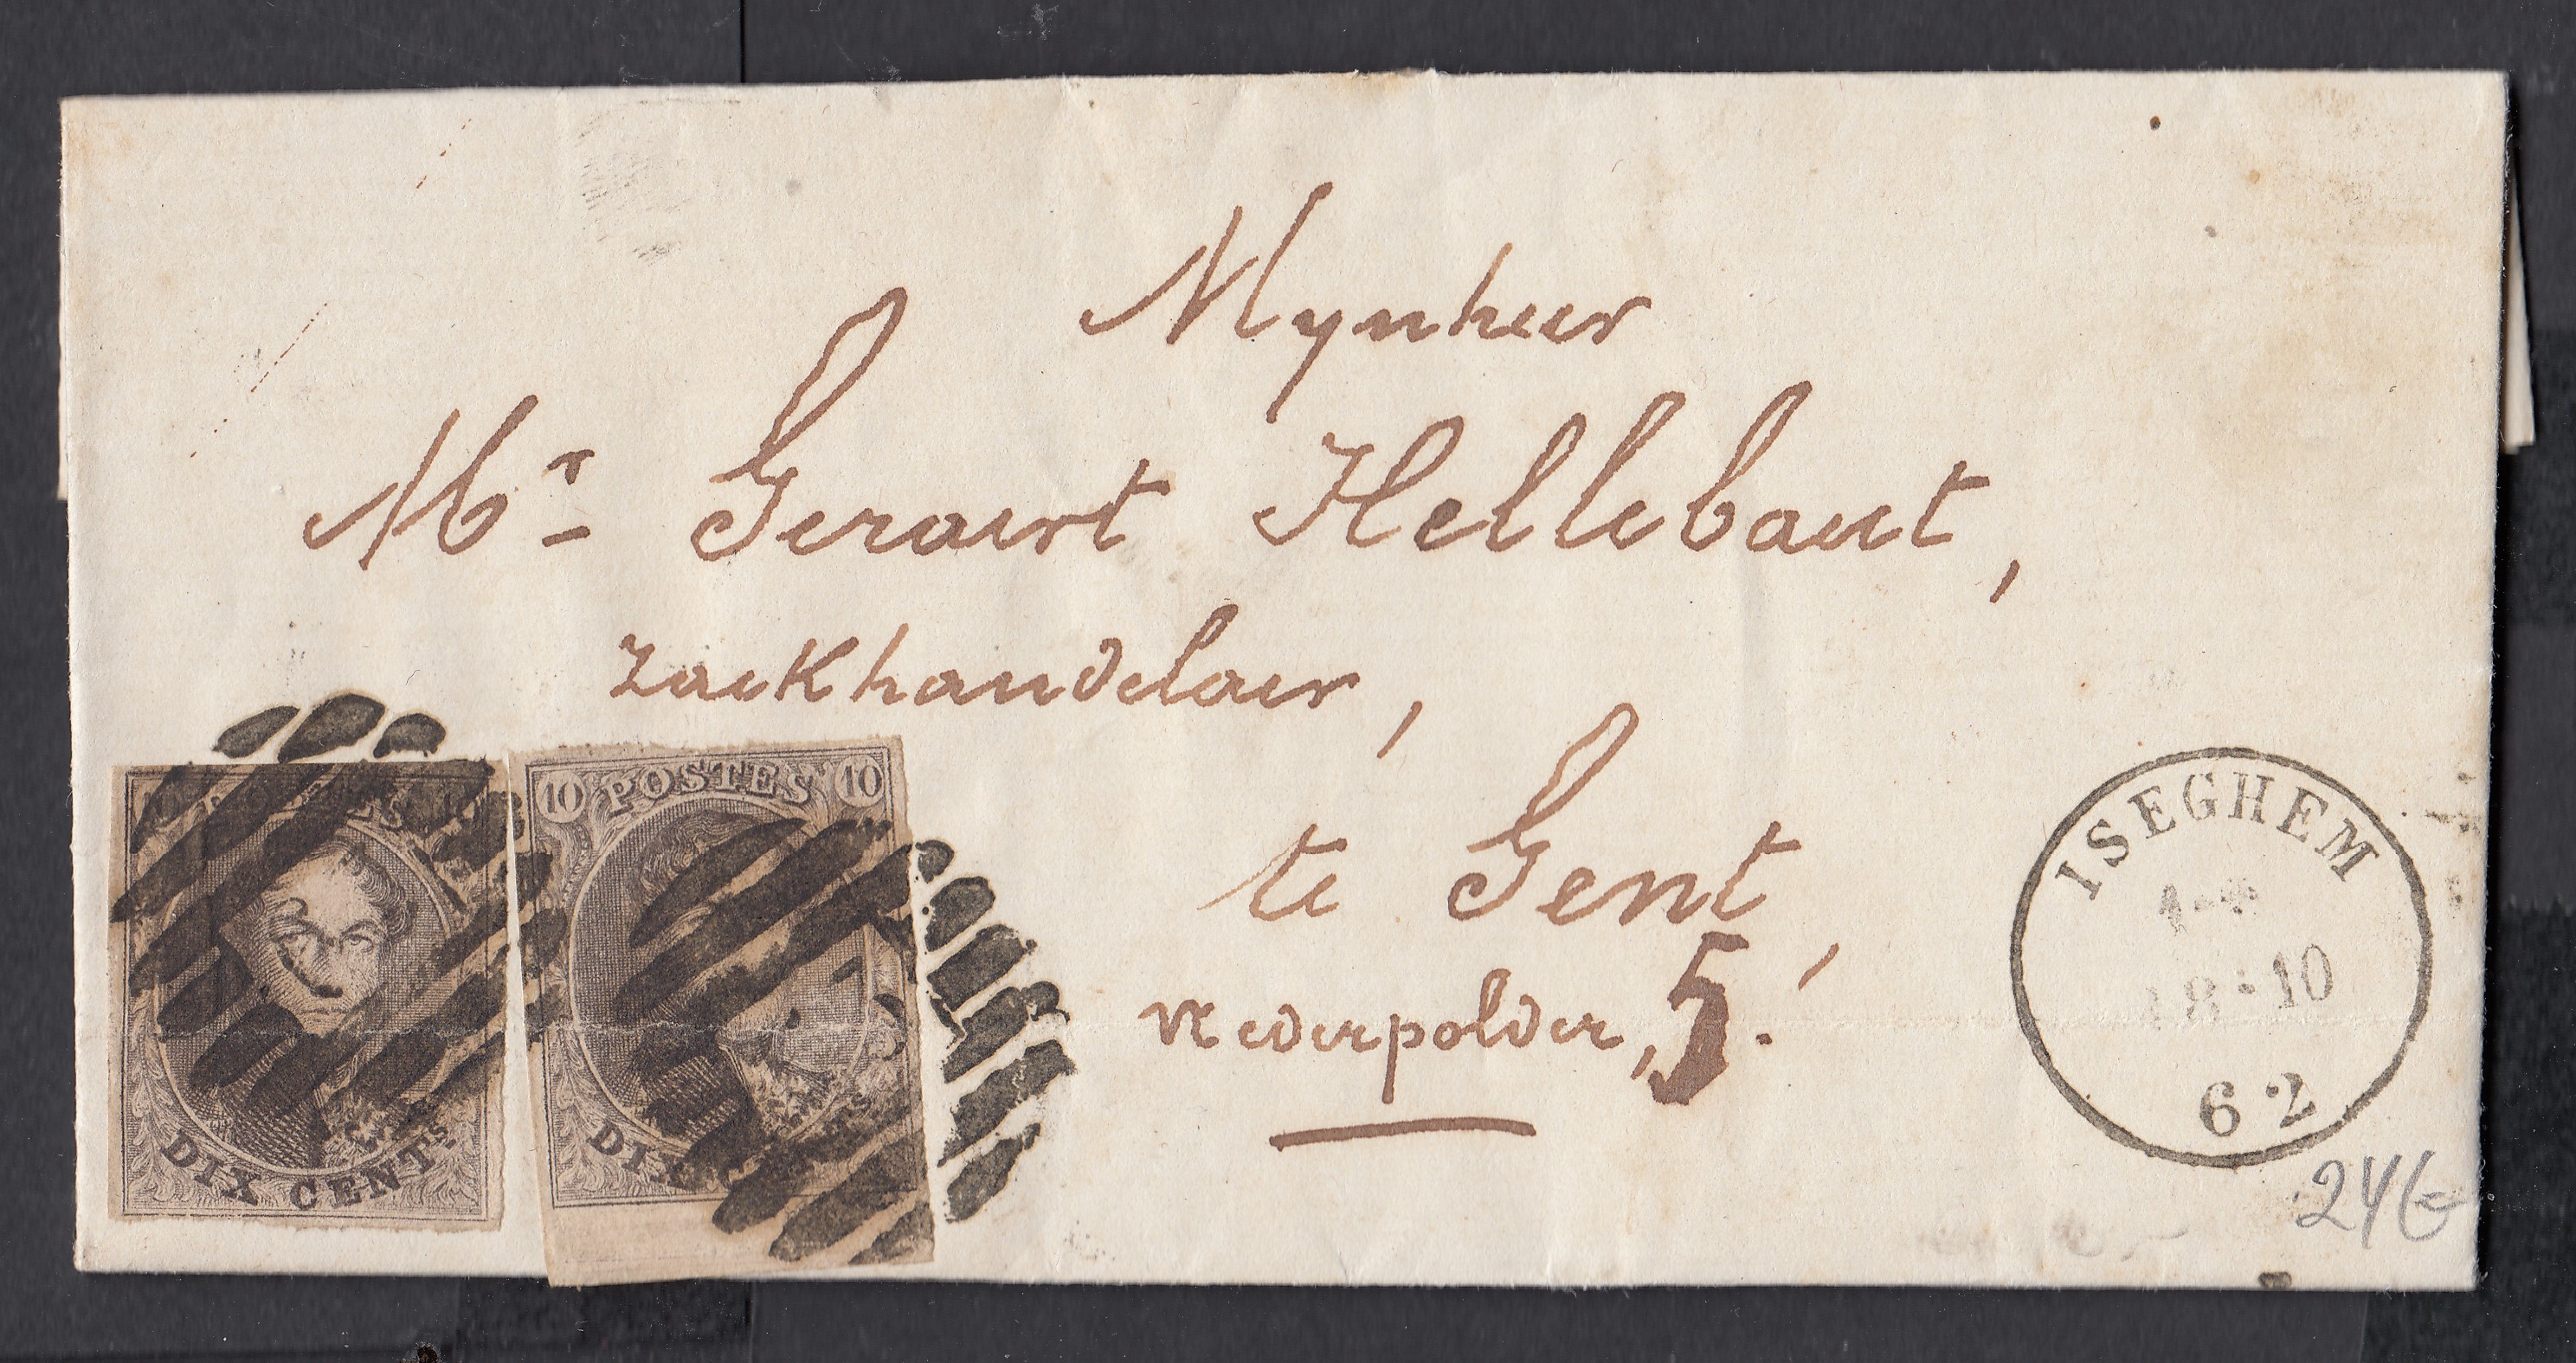 Mynheer
Mr Geraert Hellebaut,
Zaekhandelaer,
te Gent,
Nederpolder, 5.
10 POSTES 10
DIX CENTS
DIX CENTS
ISEGHEM
18·10
62